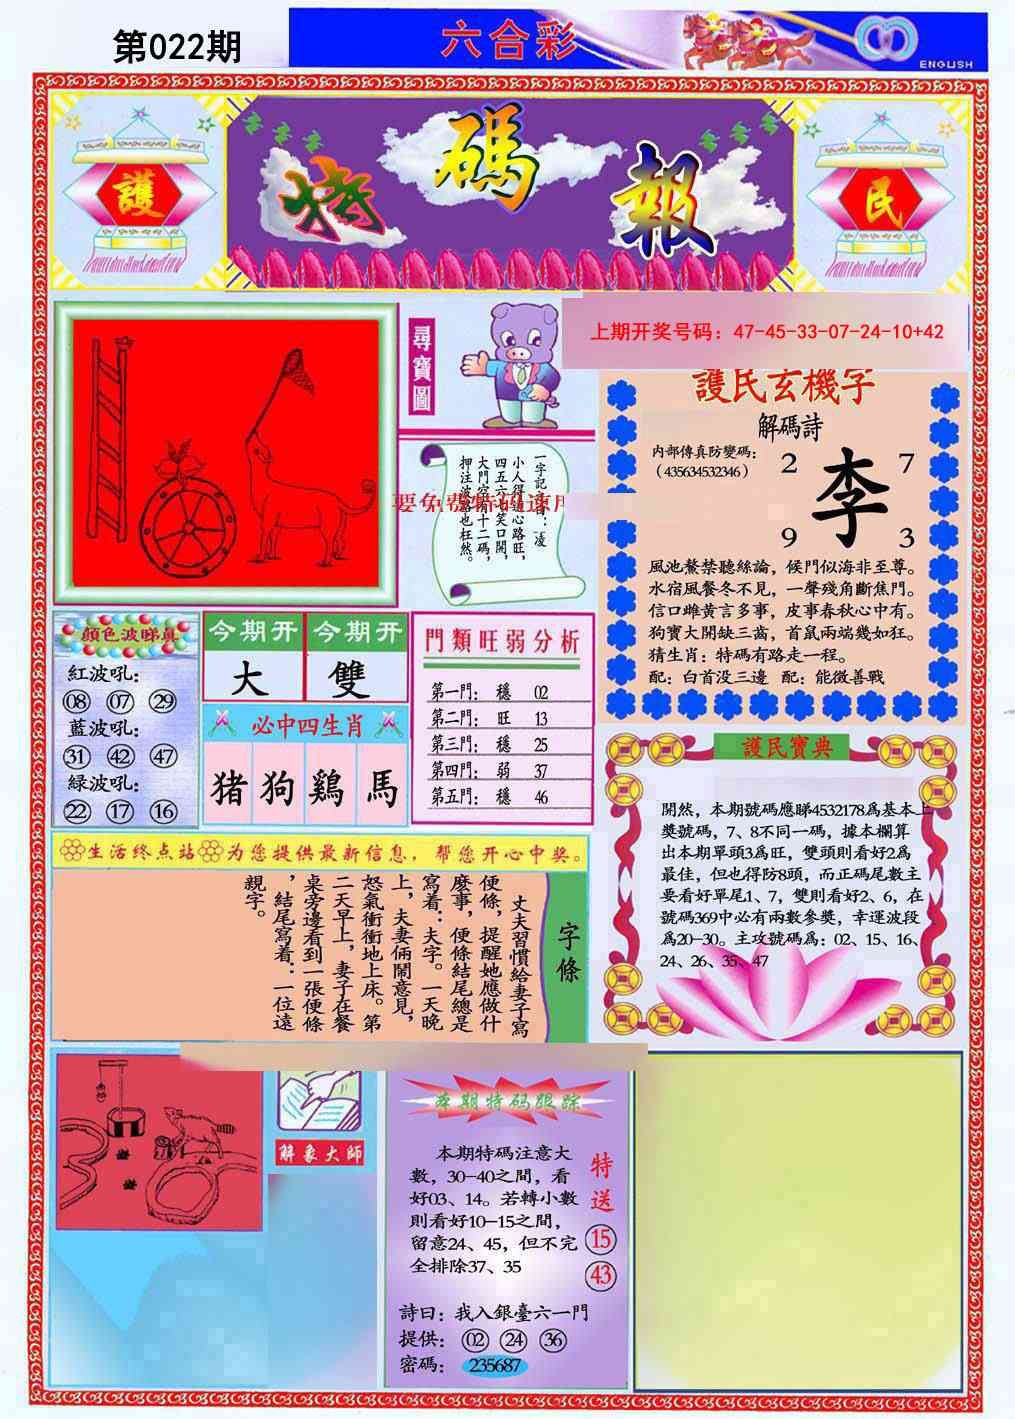 第022期
六合彩
ENGLISH
護
特碼報
民
上期开奖号码：47-45-33-07-24-10+42
尋寶圖
一字記之曰：凌
小人得志心路旺，
四五六七笑口開，
大門穷有十二碼，
押注波路也枉然。
護民玄機字
解碼詩
内部傳真防變碼：
（435634532346）
2 7
李
9 3
風池鰲禁聽絲論，候門似海非至尊。
水宿風餐冬不見，一聲残角斷焦門。
信口雌黄言多事，皮事春秋心中有。
狗寶大開缺三齒，首鼠兩端幾如狂。
猜生肖：特碼有路走一程。
配：白首没三邊 配：能微善戰
顔色波睇真
紅波吼：
08 07 29
藍波吼：
31 42 47
緑波吼：
22 17 16
今期开 今期开
大 雙
必中四生肖
猪 狗 鷄 馬
門類旺弱分析
第一門： 穩 02
第二門： 旺 13
第三門： 穩 25
第四門： 弱 37
第五門： 穩 46
護民寶典
開然，本期號碼應睇4532178爲基本上
獎號碼，7、8不同一碼，據本欄算
出本期單頭3爲旺，雙頭則看好2爲
最佳，但也得防8頭，而正碼尾數主
要看好單尾1、7，雙則看好2、6，在
號碼369中必有兩數參獎，幸運波段
爲20-30。主攻號碼爲：02、15、16、
24、26、35、47
生活终点站 为您提供最新信息，帮您开心中奖。
字條
丈夫習慣給妻子寫
便條，提醒她應做什
麽事，便條結尾總是
寫着：夫字。一天晚
上，夫妻倆鬧意見，
怒氣衝衝地上床。第
二天早上，妻子在餐
桌旁邊看到一張便條
，結尾寫着：一位遠
親字。
解象大師
本期特码跟踪
本期特碼注意大
數，30-40之間，看
好03、14。若轉小數
則看好10-15之間，
留意24、45，但不完
全排除37、35
特送
15
43
詩曰：我入銀臺六一門
提供： 02 24 36
密碼： 235687